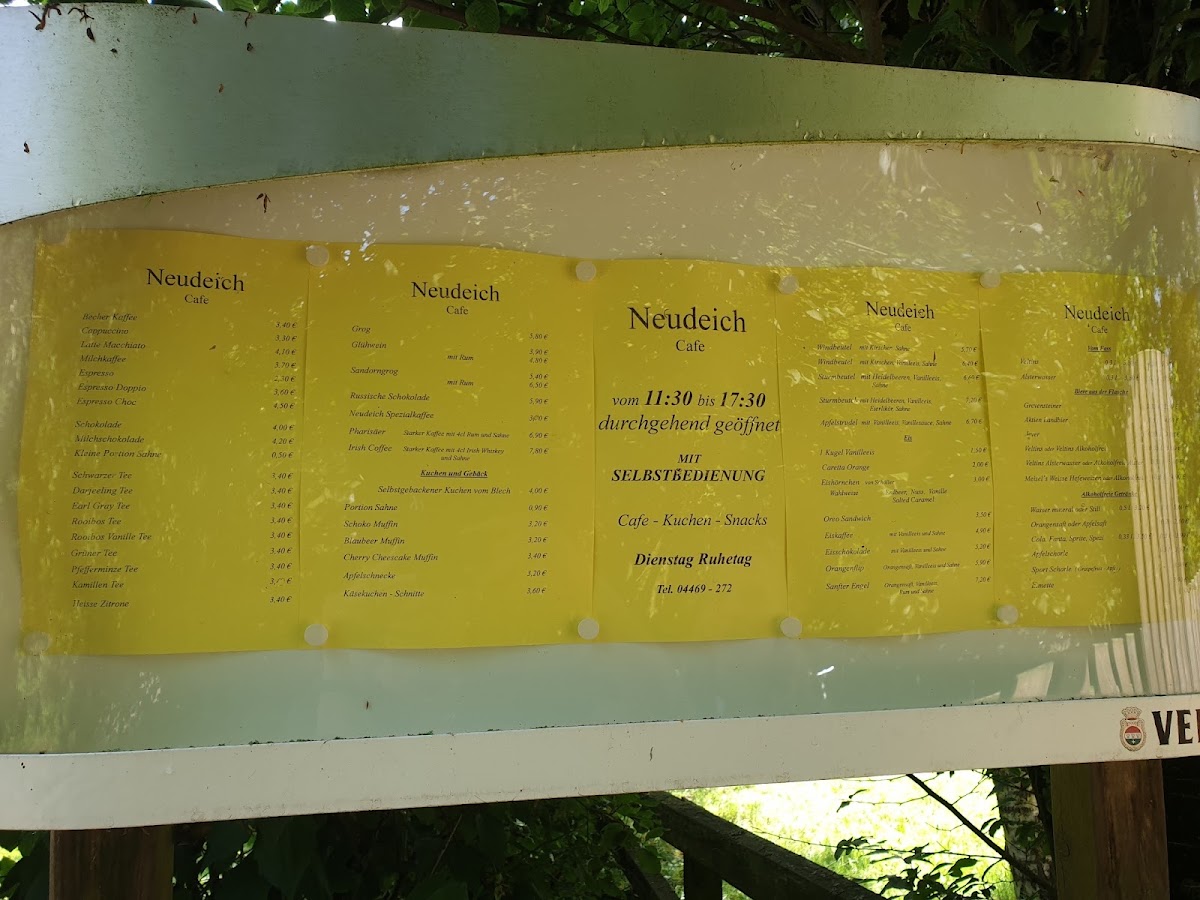 Neudeich
Cafe
Becher Kaffee 3,40 €
Cappuccino 3,30 €
Latte Macchiato 4,10 €
Milchkaffee 3,70 €
Espresso 2,30 €
Espresso Doppio 3,60 €
Espresso Choc 4,50 €
Schokolade 4,00 €
Milchschokolade 4,20 €
Kleine Portion Sahne 0,50 €
Schwarzer Tee 3,40 €
Darjeeling Tee 3,40 €
Earl Gray Tee 3,40 €
Rooibos Tee 3,40 €
Rooibos Vanille Tee 3,40 €
Grüner Tee 3,40 €
Pfefferminze Tee 3,40 €
Kamillen Tee
Heisse Zitrone 3,40 €
Neudeich
Cafe
Grog 3,80 €
Glühwein 3,90 €
mit Rum 4,80 €
Sandorngrog 5,40 €
mit Rum 6,50 €
Russische Schokolade 5,90 €
Neudeich Spezialkaffee
Pharisäer Starker Kaffee mit 4cl Rum und Sahne 6,90 €
Irish Coffee Starker Kaffee mit 4cl Irish Whiskey 7,80 €
und Sahne
Kuchen und Gebäck
Selbstgebackener Kuchen vom Blech 4,00 €
Portion Sahne 0,90 €
Schoko Muffin 3,20 €
Blaubeer Muffin 3,20 €
Cherry Cheescake Muffin 3,40 €
Apfelschnecke 3,20 €
Käsekuchen - Schnitte 3,60 €
Neudeich
Cafe
vom 11:30 bis 17:30
durchgehend geöffnet
MIT
SELBSTBEDIENUNG
Cafe - Kuchen - Snacks
Dienstag Ruhetag
Tel. 04469 - 272
Neudeich
Cafe
Windbeutel mit Kirschen, Sahne 5,70 €
Windbeutel mit Kirschen, Vanilleeis, Sahne 6,40 €
Sturmbeutel mit Heidelbeeren, Vanilleeis,
Sahne
Sturmbeutel mit Heidelbeeren, Vanilleeis, 7,20 €
Eierlikör, Sahne
Apfelstrudel mit Vanilleeis, Vanillesauce, Sahne 6,70 €
Eis
1 Kugel Vanilleeis 1,50 €
Caretta Orange 2,00 €
Eishörnchen von 1,00 €
Wahlweise Erdbeer, Nuss, Vanille
Salted Caramel
Oreo Sandwich 3,50 €
Eiskaffee mit Vanilleeis und Sahne 4,90 €
Eisschokolade mit Vanilleeis und Sahne 5,20 €
Orangenflip Orangensaft, Vanilleeis und Sahne 5,90 €
Sanfter Engel Orangensaft, Vanilleeis, 7,20 €
Rum und Sahne
Neudeich
Cafe
Vom Fass
Veltins
Alsterwasser
Biere aus der Flasche
Grevensteiner
Aktien Landbier
Jever
Veltins oder Veltins Alkoholfrei
Veltins Alsterwasser oder Alkoholfrei
Meisel's Weisse Hefeweizen oder Alkoholfrei
Alkoholfreie Getränke
Wasser mineral oder Still
Orangensaft oder Apfelsaft
Cola, Fanta, Sprite, Spezi
Apfelschorle
Sport Schorle